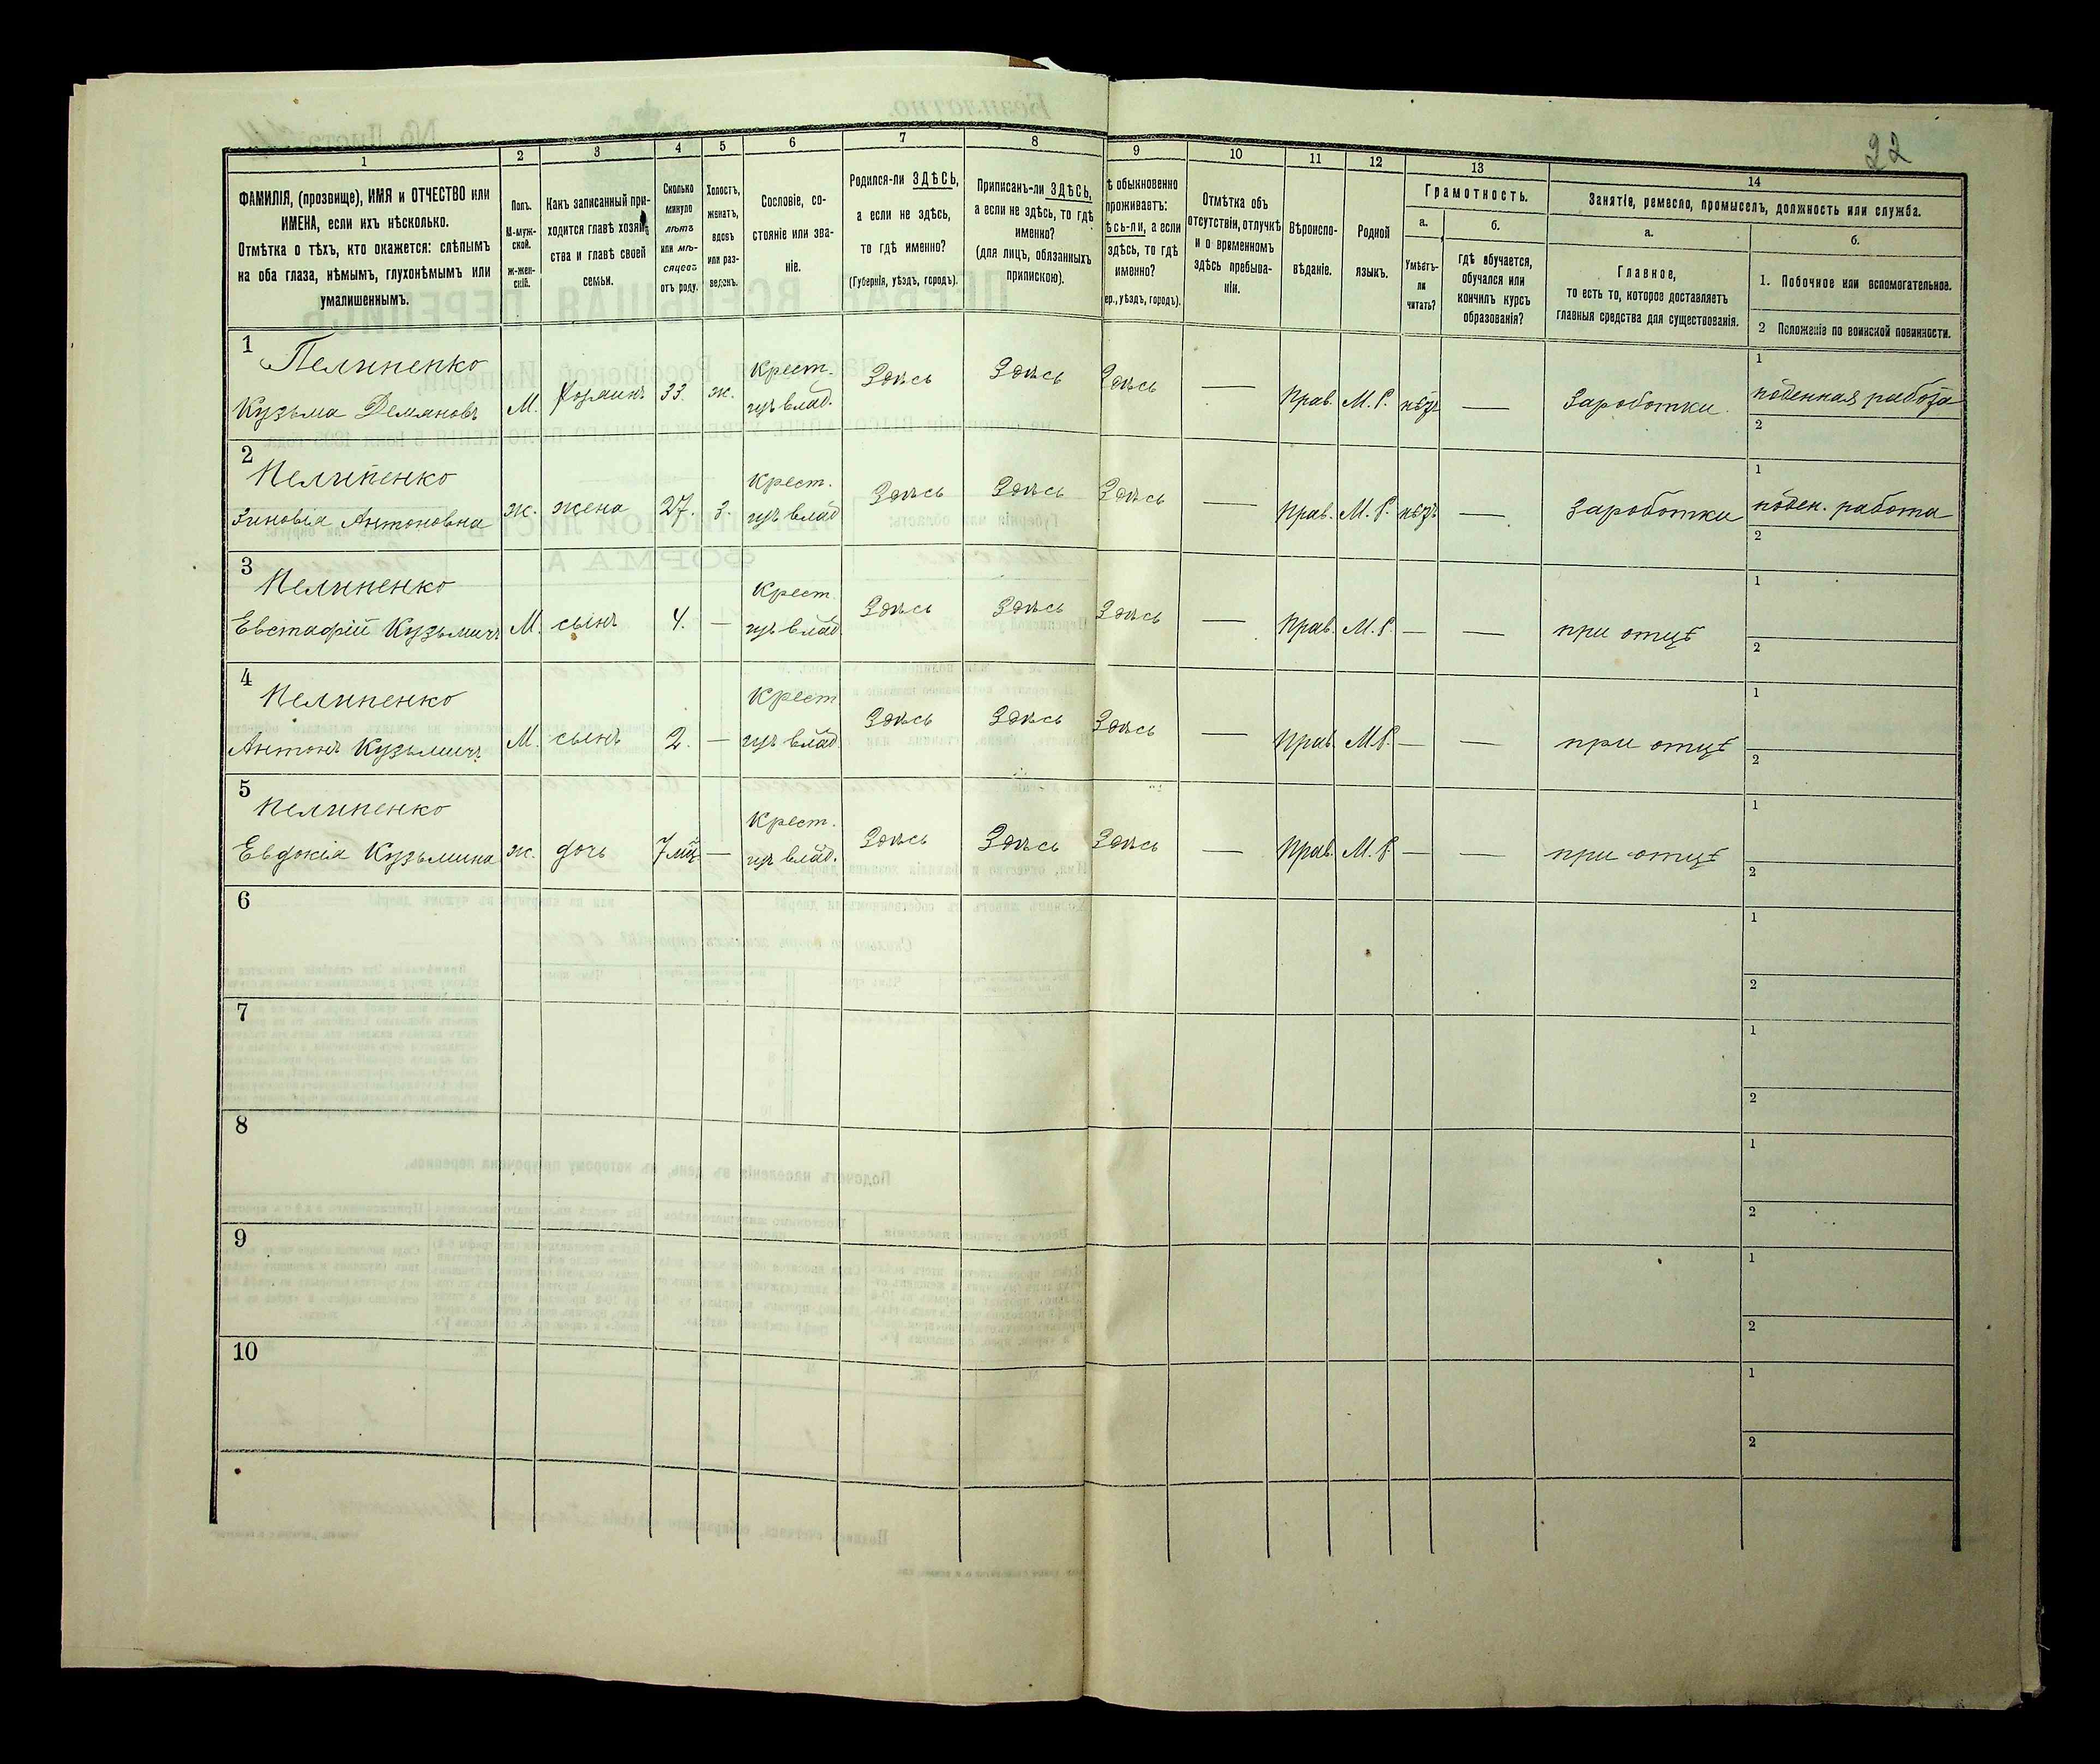 22
1 2 3 4 5 6 7 8 9 10 11 12 13 14
ФАМИЛІЯ, (прозвище), ИМЯ и ОТЧЕСТВО или
ИМЕНА, если ихъ нѣсколько.
Отмѣтка о тѣхъ, кто окажется: слѣпымъ
на оба глаза, нѣмымъ, глухонѣмымъ или
умалишеннымъ.
Полъ.
М-муж-
ской.
ж-жен-
скій.
Какъ записанный при-
ходится главѣ хозяй-
ства и главѣ своей
семьи.
Сколько
минуло
лѣтъ
или мѣ-
сяцевъ
отъ роду.
Холостъ,
женатъ,
вдовъ
или раз-
веденъ.
Сословіе, со-
стояніе или зва-
ніе.
Родился-ли ЗДѢСЬ,
а если не здѣсь,
то гдѣ именно?
(Губернія, уѣздъ, городъ).
Приписанъ-ли ЗДѢСЬ,
а если не здѣсь, то гдѣ
именно?
(для лицъ, обязанныхъ
припискою).
ѣ обыкновенно
проживаетъ:
ѣсь-ли, а если
здѣсь, то гдѣ
именно?
ер., уѣздъ, городъ).
Отмѣтка объ
отсутствіи, отлучкѣ
и о временномъ
здѣсь пребыва-
ніи.
Вѣроиспо-
вѣданіе.
Родной
языкъ.
Грамотность.
а.
Умѣетъ-
ли
читать?
б.
гдѣ обучается,
обучался или
кончилъ курсъ
образованія?
Занятіе, ремесло, промыселъ, должность или служба.
а.
Главное,
то есть то, которое доставляетъ
главныя средства для существованія.
б.
1. Побочное или вспомогательное.
2 Положеніе по воинской повинности.
1 Пелипенко Крест. Здѣсь Здѣсь Здѣсь 1
Кузьма Демяновъ М. 33. ж. Прав. М. Р. Заработки. поденная работа
2
2 Пелипенко Крест. Здѣсь Здѣсь Здѣсь 1
Зиновіа Антоновна ж. жена 27. З. Прав. М. Р. Заработки поден. работа
2
3 Пелипенко Крест. Здѣсь Здѣсь Здѣсь 1
Евстафій Кузьмичъ М. сынъ 4. — — Прав. М. Р. — — при отцѣ
2
4 Пелипенко Крест. Здѣсь Здѣсь Здѣсь 1
Антонъ Кузьмичъ М. сынъ 2. — — Прав. М. Р. — — при отцѣ
2
5 Пелипенко Крест. Здѣсь Здѣсь Здѣсь 1
Евдокіа Кузьмина ж. дочь 7 — — Прав. М. Р. — — при отцѣ
2
6 1
2
7 1
2
8 1
2
9 1
2
10 1
2